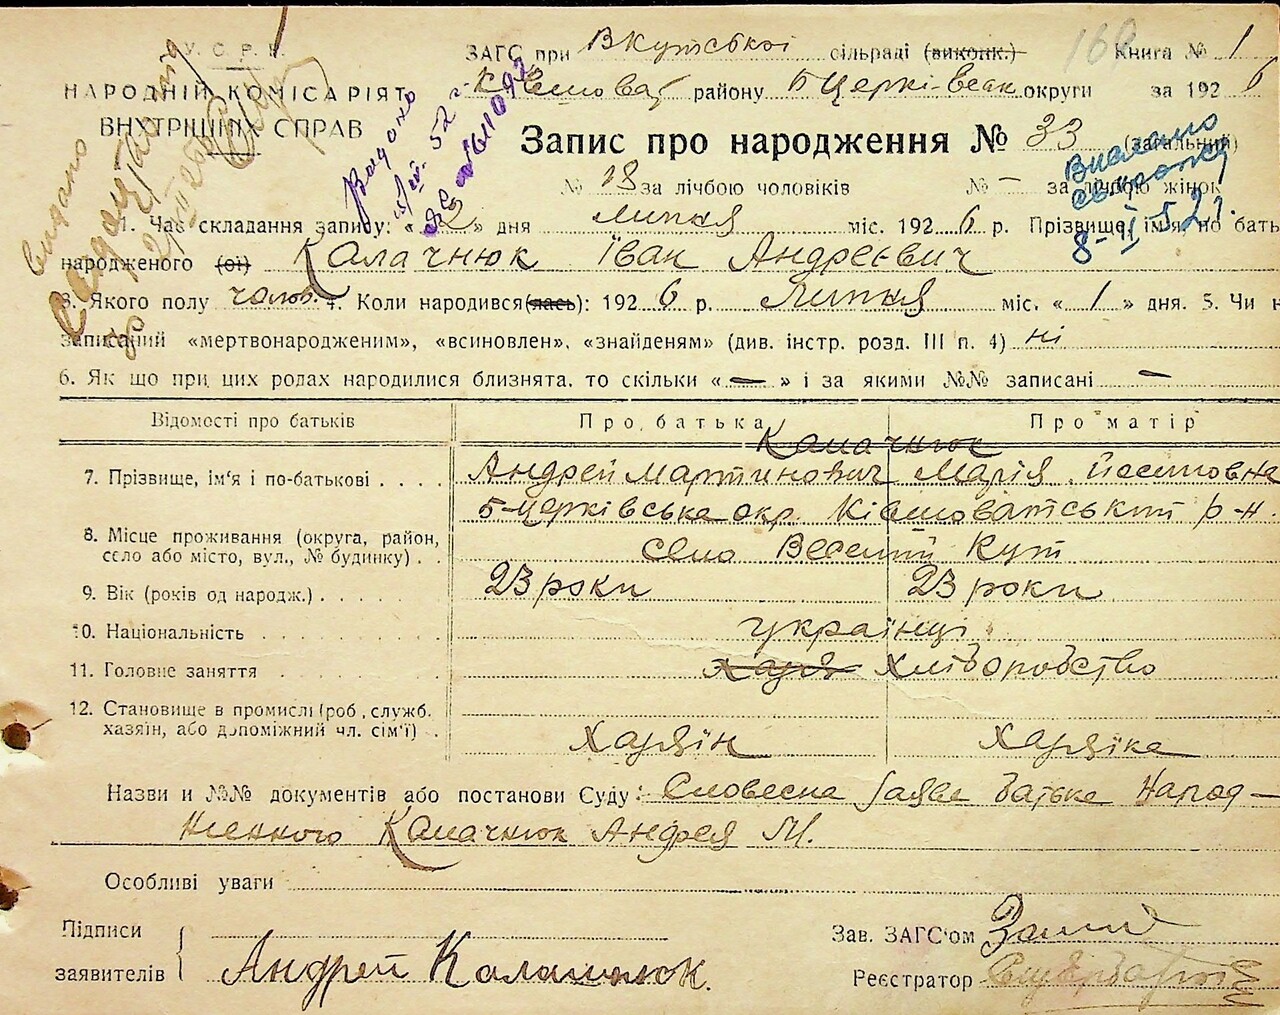 У. С. Р. Р.
НАРОДНІЙ КОМІСАРІЯТ
ВНУТРІШНІХ СПРАВ
ЗАГС при Вкутській сільраді (виконк.) 160 Книга № 1
району Б Церківськ округи за 192 6
Запис про народження № 33 (загальний)
№ 18 за лічбою чоловіків № — за лічбою жінок
Видано
8-II 52 г.
1. Час складання запису: « 2 » дня липня міс. 192 6 р. Прізвище, ім'я, по бать
народженого (ої) Калачнюк Іван Андреєвич
3. Якого полу чолов. 4. Коли народився (лась): 192 6 р. Липня міс. « 1 » дня. 5. Чи н
записаний «мертвонародженим», «всиновлен», «знайденям» (див. інстр. розд. III п. 4) ні
6. Як що при цих родах народилися близнята, то скільки « — » і за якими №№ записані —
Відомості про батьків Про батька Про матір
Калачнюк
7. Прізвище, ім'я і по-батькові Андрей Мартинович Марія Йосиповна
Б-Церківська окр. Ківшоватський р-н.
8. Місце проживання (округа, район, село або місто, вул., № будинку) село Веселий Кут
9. Вік (років од народж.) 23 роки 23 роки
10. Національність українці
11. Головне заняття Хліборобство
12. Становище в промислі (роб., служб. хазяїн, або допоміжний чл. сім'ї) Хазяїн Хазяїка
Назви и №№ документів або постанови Суду: Словесна заява батька Народ-
женного Калачнюк Андрея М.
Особливі уваги
Підписи
заявителів Андрей Калачнюк.
Зав. ЗАГС'ом
Реєстратор